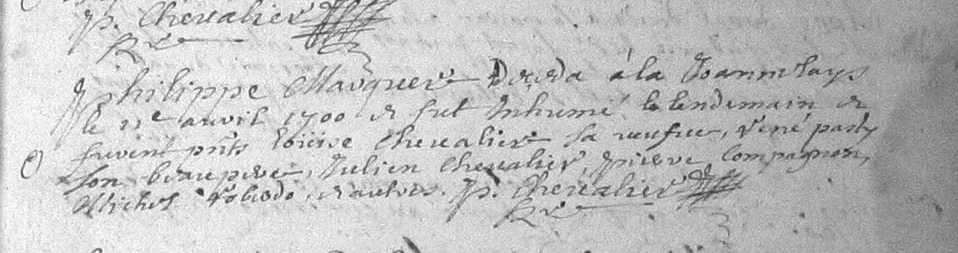 p. Chevalier
Rr
philippe Marquer Deceda à la Joannelays
le 11e auvril 1700 & fut Inhumé le lendemain &
furent pnts Loüise Chevalier sa veufue, René party
son beaupere, Julien Chevalier, pierre Compagnon,
Michel Robedo, & autres. p. Chevalier
Rr